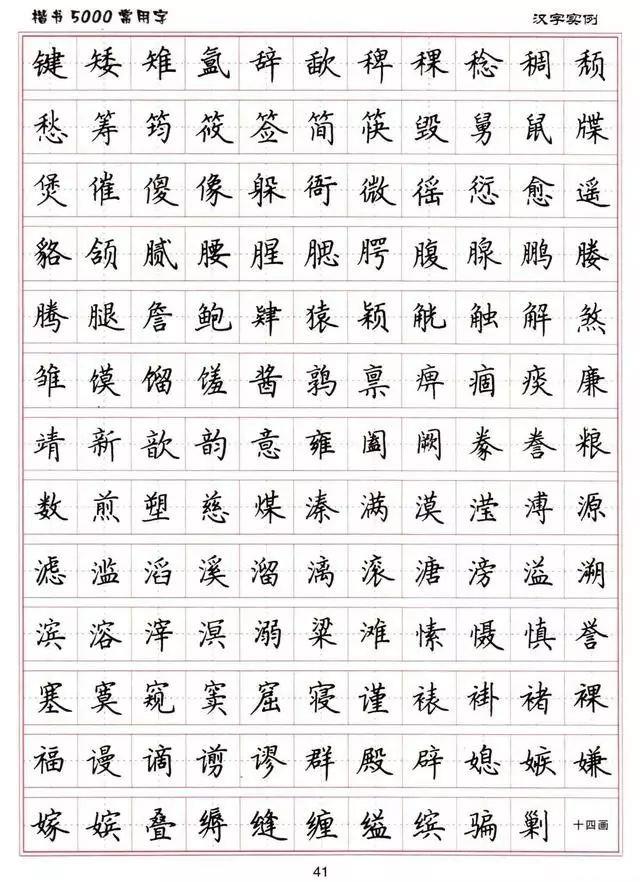 楷书5000常用字 汉字实例
键矮雉氲辞歃稗稞稔稠颓
愁筹筠筱签简筷毁舅鼠牒
煲催傻像躲衙微徭愆愈遥
貉颌腻腰腥腮腭腹腺鹏塍
腾腿詹鲍肄猿颖觥触解煞
雏馍馏馐酱鹑禀痹痼痰廉
靖新歆韵意雍阖阙豢誊粮
数煎塑慈煤溱满漠滢溥源
滤滥滔溪溜漓滚溏滂溢溯
滨溶滓溟溺粱滩愫慑慎誉
塞寞窥窦窟寝谨裱褂褚裸
福谩谪谫谬群殿辟媳嫉嫌
嫁嫔叠缛缝缠缢缤骗剿 十四画
41